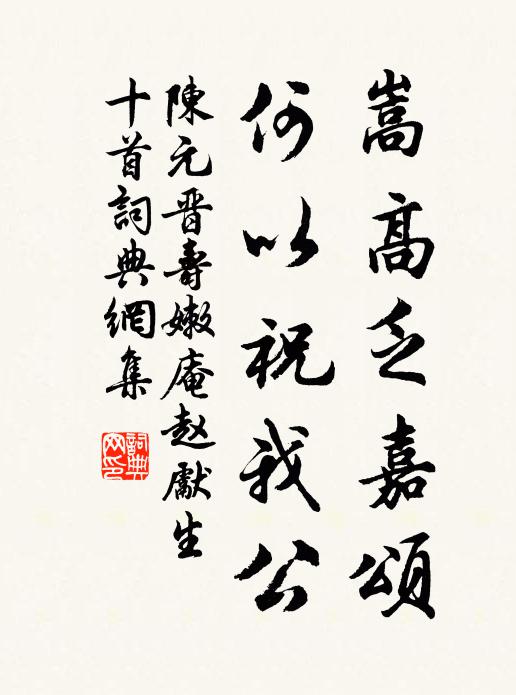 嵩高乏嘉頌
何以祝我公
陳元晋壽嫩庵趙獻生
十首詞典網集
詞典網印